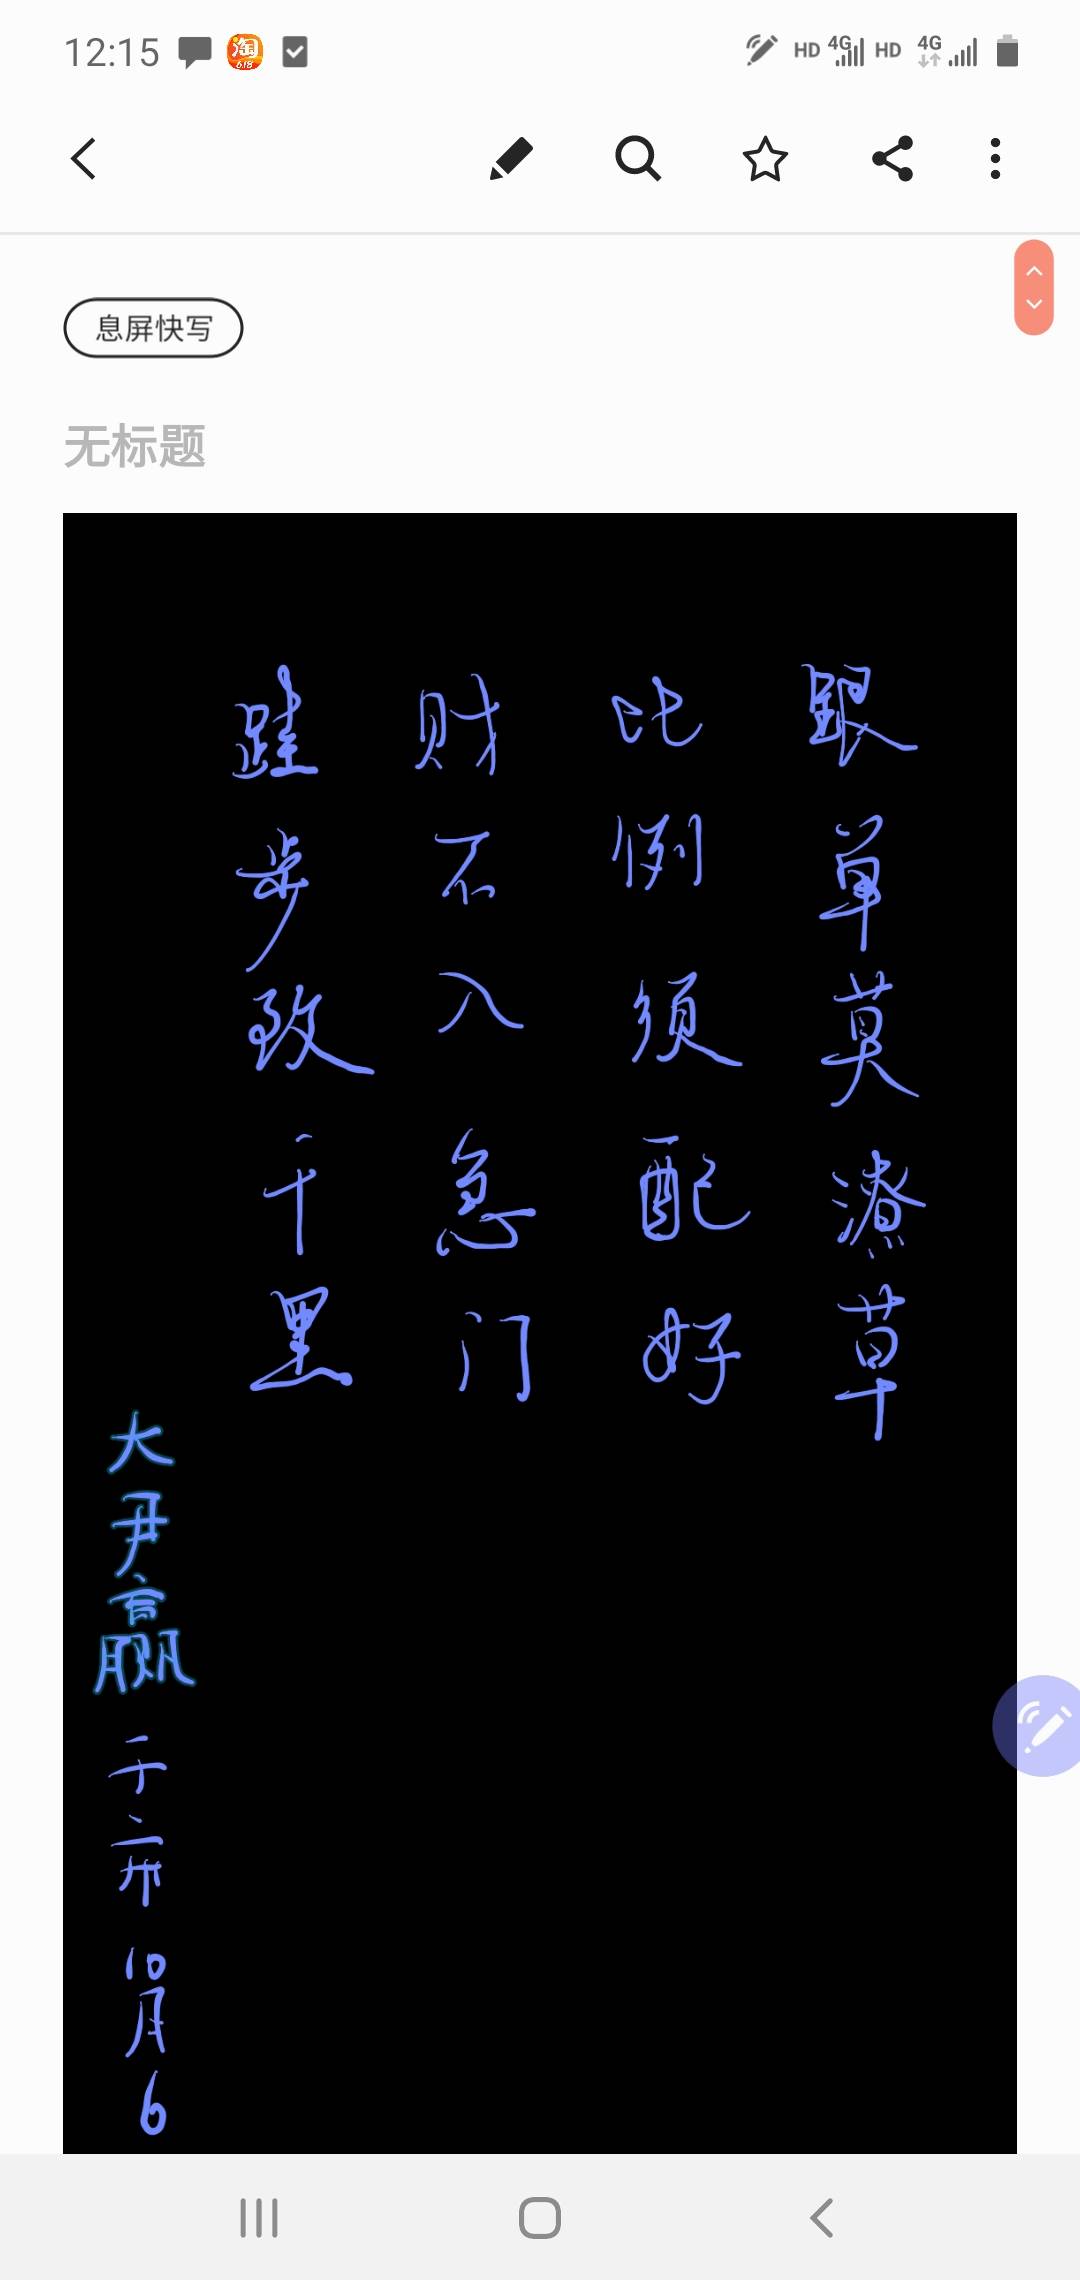 12:15
淘
6.18
HD 4G HD 4G
息屏快写
无标题
跟单莫潦草
比例须配好
财不入急门
跬步致千里
大尹赢
于
10月6